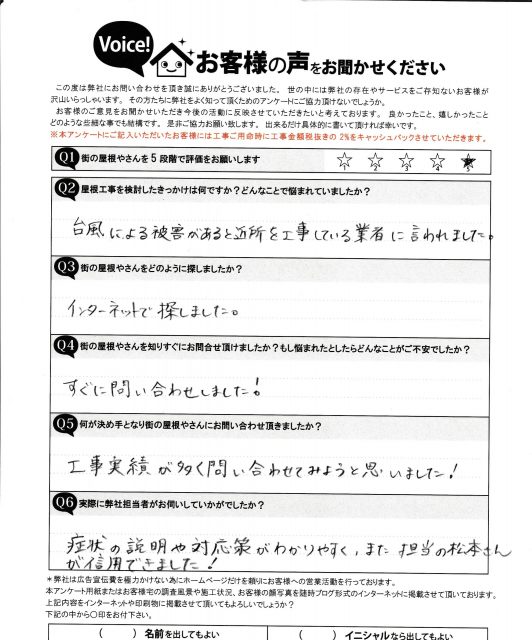 Voice!
お客様の声をお聞かせください
この度は弊社にお問い合わせを頂き誠にありがとうございました。 世の中には弊社の存在やサービスをご存知ないお客様が
沢山いらっしゃいます。 その方たちに弊社をよく知って頂くためのアンケートにご協力頂けないでしょうか。
お客様のご意見をお聞かせいただき今後の活動に反映させていただきたいと考えております。 良かったこと、嬉しかったこと
どのような些細な事でも結構です。 是非ご協力お願い致します。 出来るだけ具体的に書いて頂ければ幸いです。
※本アンケートにご記入いただいたお客様には工事ご用命時に工事金額税抜きの 2%をキャッシュバックさせていただきます。
Q1 街の屋根やさんを 5 段階で評価をお願いします
1 2 3 4 5
Q2 屋根工事を検討したきっかけは何ですか？どんなことで悩まれていましたか？
台風による被害があると近所を工事している業者に言われました。
Q3 街の屋根やさんをどのように探しましたか？
インターネットで探しました。
Q4 街の屋根やさんを知りすぐにお問合せ頂けましたか？もし悩まれたとしたらどんなことがご不安でしたか？
すぐに問い合わせしました!
Q5 何が決め手となり街の屋根やさんにお問い合わせ頂きましたか？
工事実績が多く問い合わせてみようと思いました!
Q6 実際に弊社担当者がお伺いしていかがでしたか？
症状の説明や対応策がわかりやすく、また担当の松本さん
が信用できました!
＊弊社は広告宣伝費を極力かけない為にホームページだけを頼りにお客様への営業活動を行っております。
本アンケート用紙またはお客様宅の調査風景や施工状況、お客様の顔写真を随時ブログ形式のインターネットに掲載させて頂いております。
上記内容をインターネットや印刷物に掲載させて頂いてもよろしいでしょうか？
下記の中から〇印をお付下さい。
（ ）名前を出してもよい （ ）イニシャルなら出してもよい